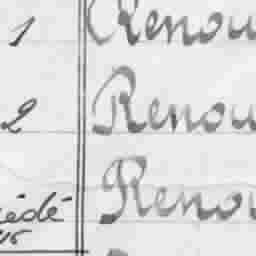 1 Renou
2 Renou
édé Renou